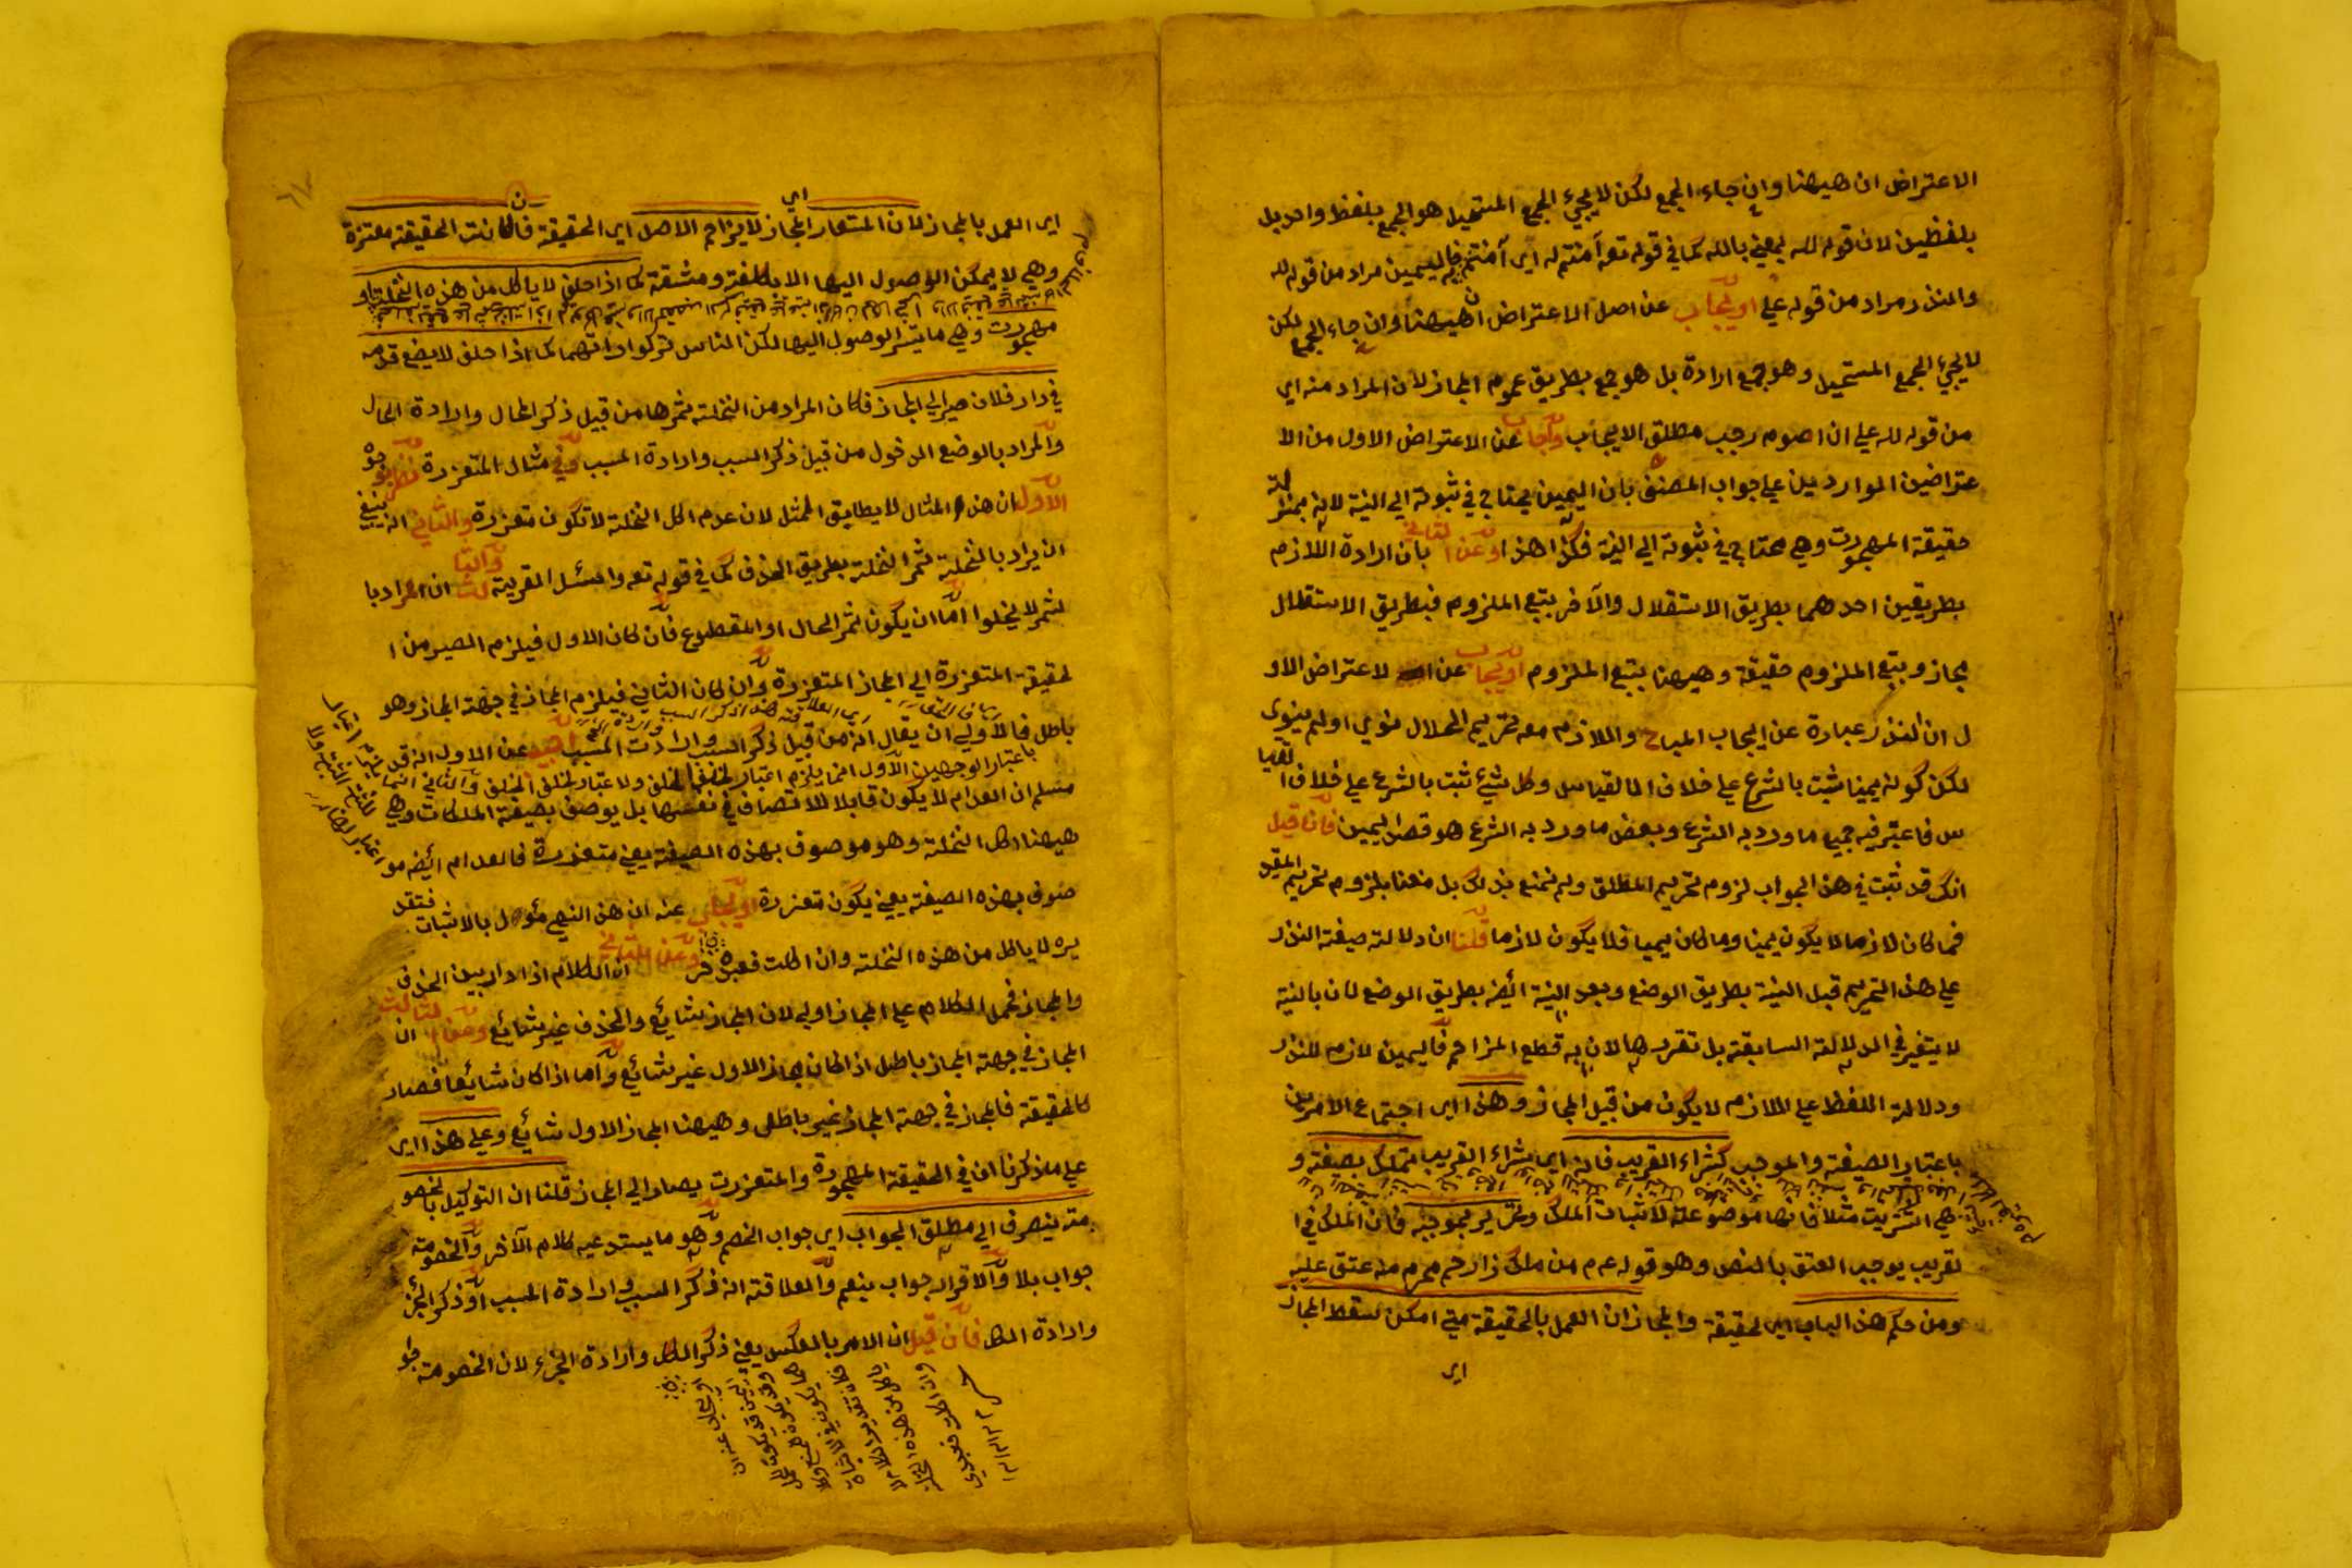 الاعتراض ان هيهنا وان جاء الجمع لكن لا يجيء الجمع المستحيل هو الجمع بلفظ واحد بل
بلفظين لان قوله لله بمعني بالله كما في قوله تعه آمنتم له اي آمنتم به فاليمين مراد من قوله لله
والنذر مراد من قوله علي او يجاب عن اصل الاعتراض ان هيهنا وان جاء الجمع لكن
لا يجيء الجمع المستحيل وهو جمع ارادة بل هو جمع بطريق عموم المجاز لان المراد منه اي
من قوله لله علي ان اصوم رجب مطلق الايجاب واجاب عن الاعتراض الاول من الا
عتراضين الواردين علي جواب المصنف بان اليمين يحتاج في ثبوته الي النية لانه بمنزلة
حقيقة المهجورت وهي محتاج في ثبوته الي النية فكذا هذا وعن الثاني بان ارادة اللازم
بطريقين احدهما بطريق الاستقلال والآخر بتبع الملزوم فبطريق الاستقلال
مجاز وبتبع الملزوم حقيقة وهيهنا بتبع الملزوم او يجاب عن الاعتراض الاو
ل ان النذر عبارة عن ايجاب المباح واللازم معه تحريم الحلال نوي او لم ينوي
لكن كونه يمينا ثبت بالشرع علي خلاف القياس وكل شيء ثبت بالشرع علي خلاف القيا
س فاعتبر فيه جميع ما ورد به الشرع وبعض ما ورد به الشرع هو قصد اليمين فان قيل
انك قد ثبت في هذا الجواب لزوم تحريم المطلق ولم نمنع بذلك بل منعنا بلزوم تحريم المقيد
فما كان لازما لا يكون يمينا وما كان يمينا فلا يكون لازما قلنا ان دلالة صيغة النذر
علي هذا التحريم قبل النية بطريق الوضع وبعد النية ائضه بطريق الوضع لان بالنية
لا يتغير في الدلالة السابقة بل تقررها لان به قطع المزاحم فاليمين لازم للنذر
ودلالة اللفظ علي اللازم لا يكون من قبيل المجاز وهذا اي اجتماع الامرين
باعتبار الصيغة والموجب كشراء القريب فانه اي شراء القريب تملك بصيغته و
هي اشتريت مثلا فانها موضوعة لاثبات الملك وتحرير بموجبه فان الملك في ا
لقريب يوجب العتق بالنص وهو قوله عم من ملك ذا رحم محرم منه عتق عليه
ومن حكم هذا الباب اي الحقيقة والمجاز ان العمل بالحقيقة متي امكن سقط المجاز
اي
اي العمل بالمجاز لان المستعار اي المجاز لا يزاحم الاصل اي الحقيقة فان كانت الحقيقة متعزرة
وهي لا يمكن الوصول اليها الا بكلفة ومشقة كما اذا حلف لا ياكل من هذه النخلة او
مهجورت وهي ما يتيسر الوصول اليها لكن الناس تركوا ارادتهما كما اذا حلف لا يضع قدمه
في دار فلان صير الي المجاز فكان المراد من النخلة ثمرها من قبيل ذكر المحل وارادة الحال
والمراد بالوضع الدخول من قبيل ذكر السبب وارادة المسبب وفي مثال المتعزرة نظر بوجوه
الاول ان هذه المثال لا يطابق الممثل لان عدم اكل النخلة لا تكون متعزرة والثاني انه ينبغي
ان يراد بالنخلة ثمر النخلة بطريق الحذف كما في قوله تعه واسئل القرية والثالث ان المراد با
لثمر لا يخلوا اما ان يكون ثمر الحال او المقطوع فان كان الاول فيلزم المصير من ا
لحقيقة المتعزرة الي المجاز المتعزرة وان كان الثاني فيلزم المجاز في جهة المجاز وهو
باطل فالاولي ان يقال انه من قبيل ذكر السبب وارادت المسبب اجيب عن الاول انه قد
مسلم ان العدام لا يكون قابلا للاتصاف في نفسها بل يوصف بصيغة الملكات وهي
هيهنا اكل النخلة وهو موصوف بهذه الصيغة يعني متعزرة فالعدام ائضه مو
صوف بهذه الصيغة يعني يكون متعزرة او يجاب عنه ان هذا النهي مؤول بالاثبات فتقد
يره لا ياكل من هذه النخلة وان اكلت فعبدي حر وعن الثاني ان الكلام اذا دار بين الحذف
والمجاز فحمل الكلام علي المجاز اولي لان المجاز شائع والحذف غير شائع وعن الثالث ان
المجاز في جهة المجاز باطل اذا كان مجاز الاول غير شائع واما اذا كان شائعا فصار
كالحقيقة فالمجاز في جهة المجاز غير باطل وهيهنا المجاز الاول شائع وعلي هذا اي
علي ما ذكرنا ان في الحقيقة المهجورة والمتعزرت يصار الي المجاز قلنا ان التوكيل بالخصو
مة ينصرف الي مطلق الجواب اي جواب الخصم وهو ما يستدعيه كلام الآخر والخصومة
جواب بلا والاقرار جواب بنعم والعلاقة انه ذكر السبب وارادة المسبب او ذكر الجز
وارادة الكل فان قيل ان الامر بالعكس يعني ذكر الكل وارادة الجزء لان الخصومة جو